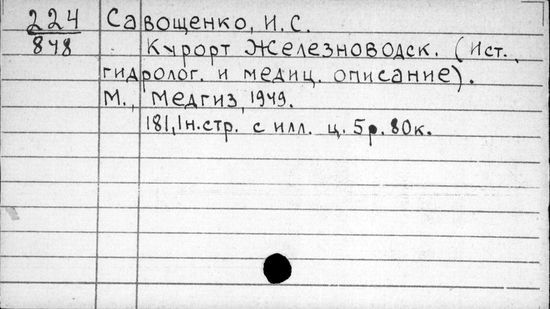 224 Савощенко, И.С.
848 Курорт Железноводск. (Ист.,
гидролог. и медиц. описание).
М., Медгиз, 1949.
181, 1н.стр. с илл. ц. 5р. 80к.